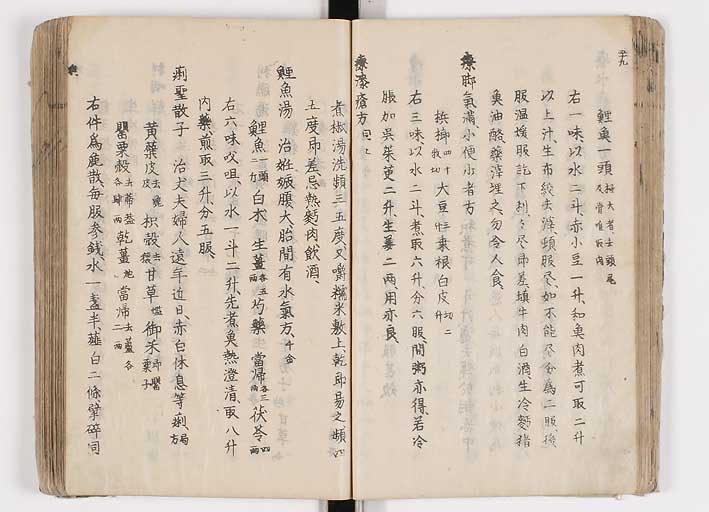 鯉魚一頭
右一味以水二斗赤小豆一升和魚肉煮可取二升
以上汁生布絞去滓頓服尽如不能尽分為二服後
服温煖服訖下利々尽即差 猪牛肉白酒生冷麪猪
魚油酪藥滓埋之勿令人食
療脚氣滿小便少者方
檳榔 四十枚切 大豆 三升 桑根白皮 切二升
右三味以水二斗煮取六升分六服間粥亦得若冷
脹加吴茱萸二升生薑二兩用亦良
療漆瘡方 同上
煮椒湯洗頻三五度又嚼糯米敷上乾即易之頻四
五度即差忌熱麪肉飲酒
鯉魚湯 治妊娠腹大胎間有水氣方 千金
鯉魚 一頭二斤 白朮 生薑 各五兩 芍藥 當歸 各三兩 茯苓 四兩
右六味㕮咀以水一斗二升先煮魚熟澄清取八升
内藥煎取三升分五服
痢聖散子 治丈夫婦人遠年近日赤白休息等痢 局方
黃蘗皮 枳殼 甘草 御米 即罌粟子
罌粟殻 去蒂蓋各肆兩 乾薑 當歸 去蘆各二兩
右件為麁散毎服参錢水一盞半薤白二條擘碎同